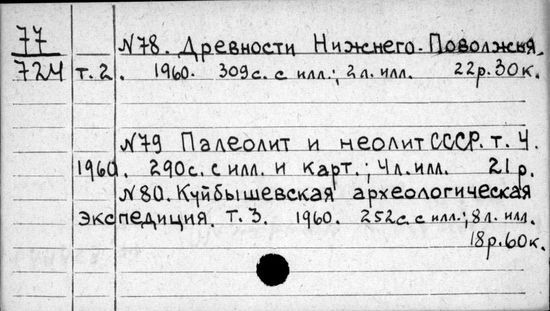 77
№78. Древности Нижнего Поволжья.
724 т.2. 1960. 309с. с илл.; 2л. илл. 22р.30к.
№79 Палеолит и неолит СССР. т. 4.
1960. 290с. с илл. и карт.; 4л. илл. 21р.
№80. Куйбышевская археологическая
экспедиция. т. 3. 1960. 252с. с илл.; 8л. илл.
18р.60к.